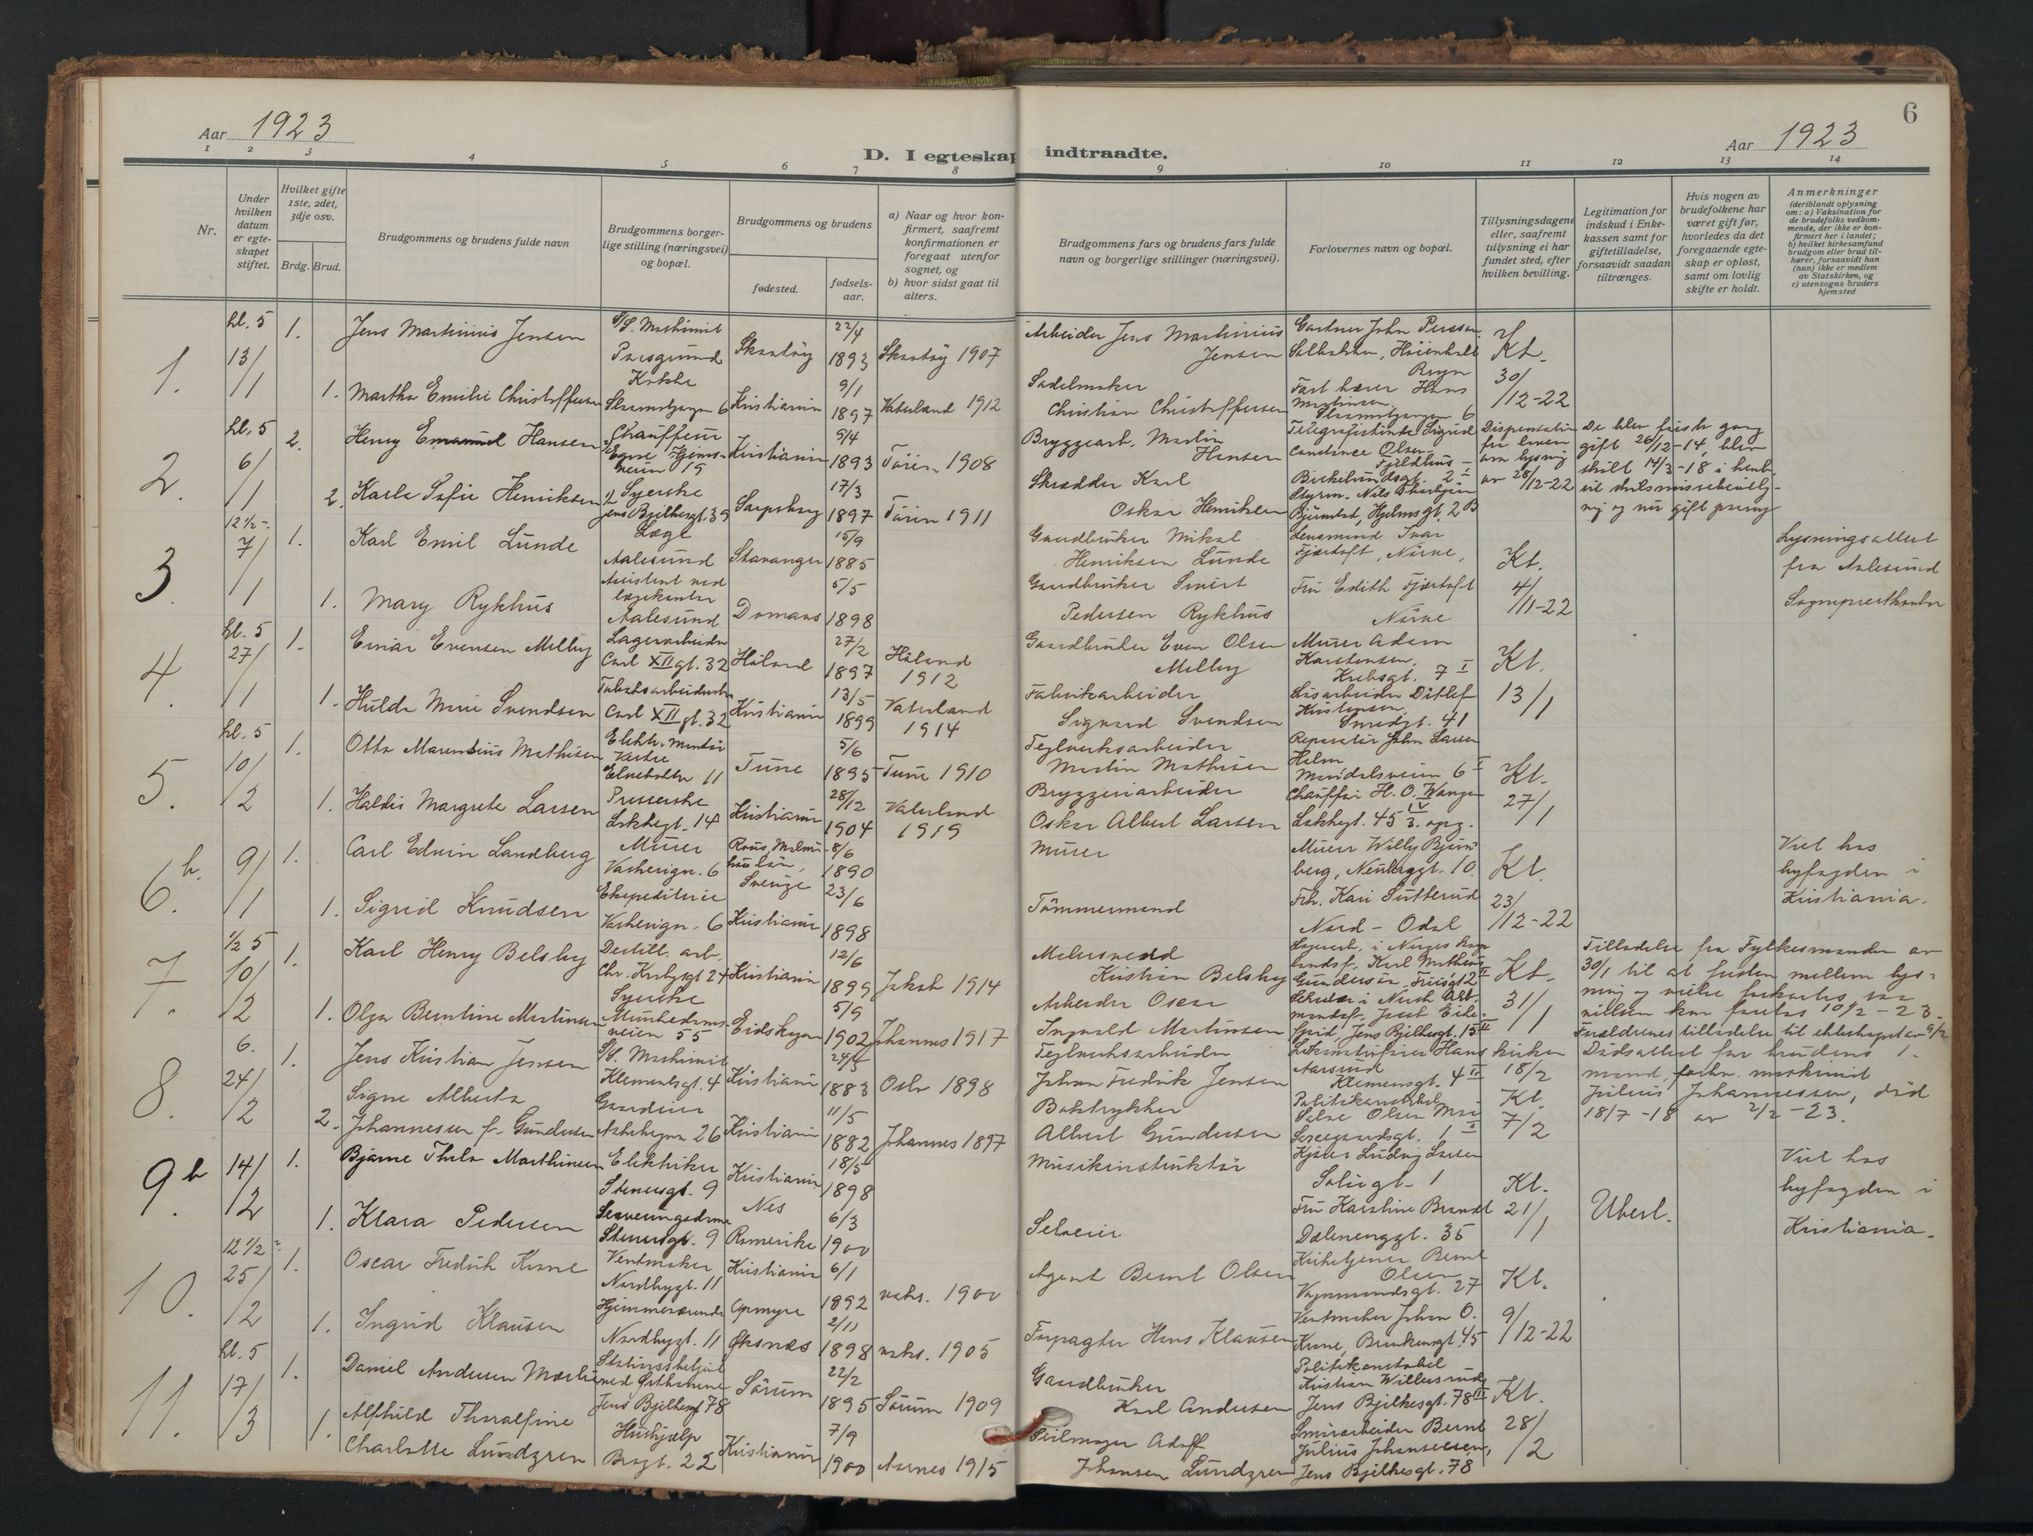 Aar 1923
D. I egteskap indtraadte.
Aar 1923
6
1 2 3 4 5 6 7 8 9 10 11 12 13 14
Nr.
Under hvilken datum er egteskapet stiftet.
Hvilket gifte 1ste, 2det, 3dje osv.
Brdg. Brud.
Brudgommens og brudens fulde navn
Brudgommens borgerlige stilling (næringsvei) og bopæl.
Brudgommens og brudens
fødested.
fødselsaar.
a) Naar og hvor konfirmert, saafremt konfirmationen er foregaat utenfor sognet, og
b) hvor sidst gaat til alters.
Brudgommens fars og brudens fars fulde navn og borgerlige stillinger (næringsvei).
Forlovernes navn og bopæl.
Tillysningsdagene eller, saafremt tillysning ei har fundet sted, efter hvilken bevilling.
Legitimation for indskud i Enkekassen samt for giftetilladelse, forsaavidt saadan tiltrænges.
Hvis nogen av brudefolkene har været gift før, hvorledes da det foregaaende egteskap er opløst, samt om lovlig skifte er holdt.
Anmerkninger
(deriblandt oplysning om: a) Vaksination for de brudefolks vedkommende, der ikke er konfirmert her i landet;
b) hvilket kirkesamfund brudgom eller brud tilhører, forsaavidt han (hun) ikke er medlem av Statskirken, og
c) utensogns bruders hjemsted
1. kl. 5 13/1
1. Jens Martinius Jensen
S/S. Maskinist Porsgrund
Skaatøy 22/4 1893 Skaatøy 1907
Arbeider Jens Martinius Jensen
Gartner John Persson
Kl. 30/12-22
1. Martha Emilie Christoffersen
Kokke
Kristiania 9/1 1897 Vaterland 1912
Sadelmaker Christian Christoffersen
Hans Martinsen
2. kl. 5 6/1
2. Henry Emanuel Hansen
Chauffeur
Kristiania 5/4 1893 1908
Bryggearb. Martin Hansen
Telegrafistinde Sigrid
Dispensation fra loven om lysning av 28/12-22
De blev første gang gift 26/12-14, blev skilt 14/3-18
2. Karla Sofie Henriksen
Syerske Jens Bjelkesgt. 39
Sarpsborg 17/3 1897 1911
Skrædder Karl Oskar Henriksen
Hjelmsgt. 2 B
3. 12 1/2 7/1
1. Karl Emil Lunde
Læge Aalesund
Stavanger 15/9 1885
Gaardbruker Mikal Henriksen Lunde
Lensmand Ivar Fjørtoft, Nørve,
Kl. 4/11-22
Lysningsattest fra Aalesund Sogneprestkontor
1. Mary Rykhus
Assistent ved lægekontor Aalesund
Domaas 5/5 1898
Gaardbruker Sivert Pedersen Rykhus
Fru Edith Fjørtoft Nørve
4. kl. 5 27/1
1. Einar Evensen Melby
Lagerarbeider Carl XII gt. 32
Høland 27/2 1897 Høland 1912
Gaardbruker Even Olsen Melby
Murer Adam Karstensen, Krebsgt. 7 I
Kl. 13/1
1. Hulda Marie Svendsen
Tobaksarbeiderske Carl XII gt. 32
Kristiania 13/5 1899 Vaterland 1914
Fabrikarbeider Sigvard Svendsen
Ditlef Kristensen, Smedgt. 41
5. kl. 5 10/2
1. Otto Marensius Mathisen
Elektr. Montør Vestre Elvebakke 11
Tune 5/6 1895 Tune 1910
Teglverksarbeider Martin Mathisen
Reparatør John Larsen Holm Mandalsveien 6
Kl. 27/1
1. Haldis Margrete Larsen
Presserske Lakkegt. 14
Kristiania 28/12 1904 Vaterland 1919
Bryggeriarbeider Oskar Albert Larsen
Chauffør H. O. Wangen Lakkegt. 45 IV 3. opg.
6 b. 9/1
1. Carl Edvin Landberg
Murer Vaskerign. 6
Sverige 8/6 1890
Murer
Murer Willy Bjørnberg, 10.
Kl. 23/12-22
Viet hos byfogden i Kristiania.
1. Sigrid Knudsen
Ekspeditrice Vaskerign. 6
Kristiania 23/6 1898
Tømmermand
Frk. Kari Sætterud Nord-Odal
7. 1/2 5 10/2
1. Karl Henry Belsby
Destill. arb. Chr. Krohgsgt 24
Kristiania 12/6 1899 Jakob 1914
Kristian Belsby
Karl Matheus Gundersen
Kl. 31/1
Tilladelse fra Fylkesmanden av 30/1 til at fristen mellem lysning og vielse forkortes, saa vielsen kan foretas 10/2-23.
Forældrenes tilladelse til ekteskapet av 9/2
1. Olga Berntine Martinsen
Syerske Munkedamsveien 55
Eidskogen 5/9 1902 Johannes 1917
Arbeider Oscar Ingvald Martinsen
Jens Bjelkesgt. 15 II
8. 6. 24/2
1. Jens Kristian Jensen
S/S. Maskinist Klemetsgt. 4
Kristiania 1883 Oslo 1898
Teglverksarbeider Johan Fredrik Jensen
Hans Aarsrud Klemensgt. 4 II
18/2 Kl. 7/2
Dødsattest for brudens 1. mand, forhv. maskinist Julius Johannessen, død 18/7-18 av 2/2-23.
2. Signe Alberta Johannessen f. Gundersen
Gaardeier Aakebergv 26
Kristiania 11/5 1882 Johannes 1897
Boktrykker Albert Gundersen
Politikonstabel
9 b. 14/2
1. Bjarne Thilo Marthinsen
Elektriker Stenersgt. 9
Kristiania 18/5 1898
Musikinstruktør
Kjører Ludvig Larsen Soliegt. 1
Kl. 21/1
Ubest.
Viet hos byfogden i Kristiania.
1. Klara Pedersen
Serveringsdame Stenersgt. 9
Nes Romerike 6/3 1900
Selveier
Fru Karstine Brandt Dælenenggt. 35
10. 12 1/2 25/2
1. Oscar Fredrik Krone
Ventmaker Nordbygt. 11
Kristiania 6/1 1892 vaks. 1900
Agent Bernt Olsen
Kirketjener Bernt Olsen
Kl. 9/12-22
1. Ingrid Klausen
Nordbygt. 11
Øksnes 2/11 1898 vaks. 1905
Forpagter Hans Klausen
Ventmaker Johan O. Krone, 45
11. kl. 5 17/3
1. Daniel Andersen Mærli
Stationsbetjent ved Østbanen Jens Bjelkesgt 78
Sørum 22/2 1895 Sørum 1909
Gaardbruker Karl Andersen
Politikonstabel Kristian Willersrud Jens Bjelkesgt. 78 II
Kl. 28/2
1. Alfhild Thoralfine Charlotte Lundgren
Hushjælp Brogt. 22
Kristiania 7/9 1900 Aasnes 1915
Seilmager Adolf Johansen Lundgren
Smørarbeider Bernt Julius Johannessen, Jens Bjelkesgt. 78